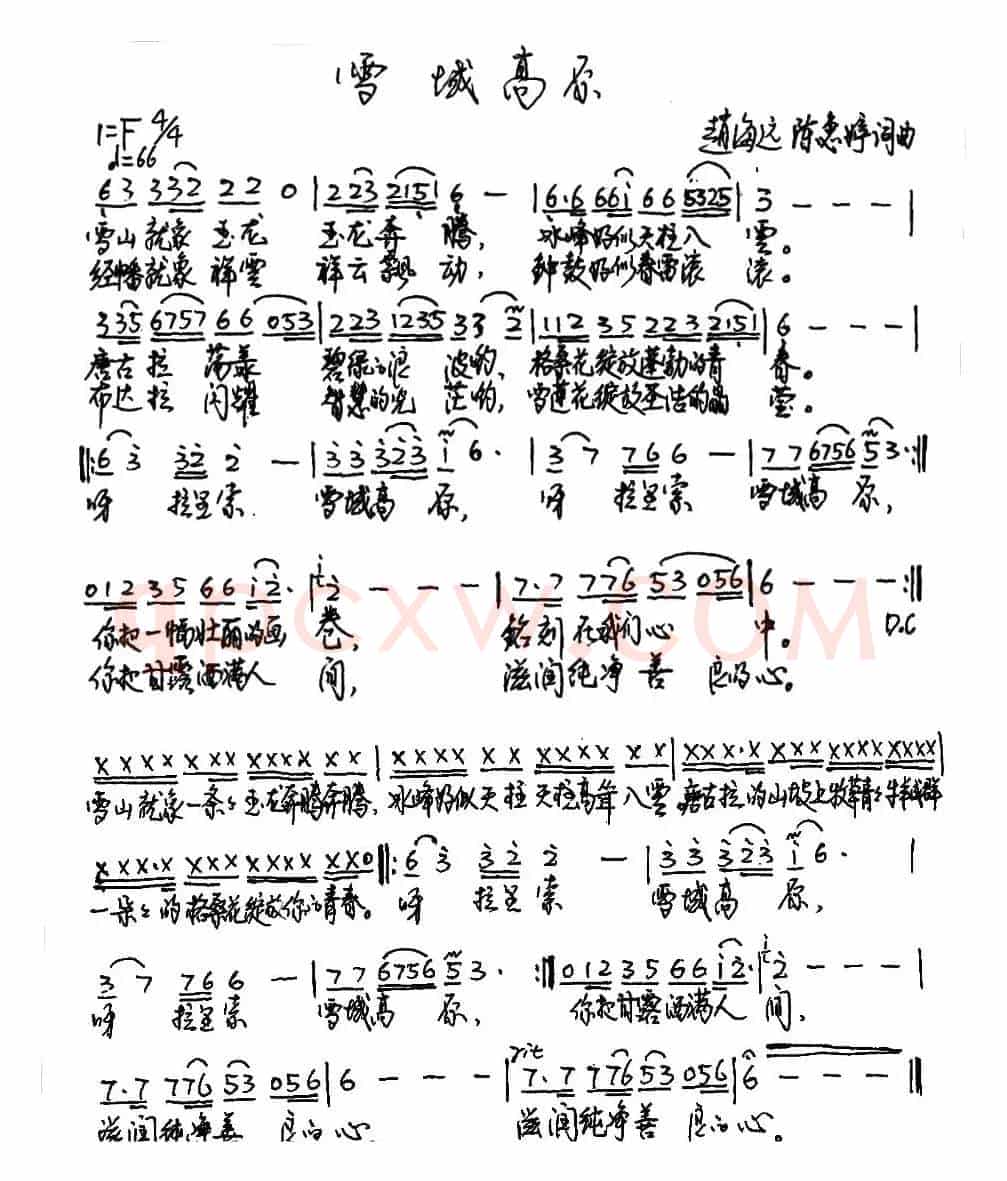 雪域高原
1=F 4/4
♩=66
趙海远 陈惠婷词曲
63 332 22 0 | 223 2151 6 – | 6·6 66i 66 5325 | 3 – – – |
雪山就象玉龙 玉龙奔腾, 冰峰好似天柱入雲。
经幡就象祥雲 祥云飘动, 钟鼓好似春雷滚滚。
335 6757 66 053 | 223 1235 33 2 | 112 35 223 2151 | 6 – – – |
唐古拉荡漾 碧绿的浪波哟, 格桑花绽放蓬勃的青春。
布达拉闪耀 智慧的光茫哟, 雪莲花绽放圣洁的晶莹。
‖: 6 3 32 2 – | 3 3 323 i 6· | 3 7 76 6 – | 77 6756 5 3· :‖
呀 拉呈索 雪域高原, 呀 拉呈索 雪域高原,
012 35 66 i2· | 2 – – – | 7·7 776 53 056 | 6 – – – :‖
你把一幅壮丽的画卷, 銘刻在我们心中。 D.C
你把甘露洒满人间, 滋润纯净善良的心。
QPCXW.COM
XXXX XXX XXXX XX | XXXX XX XXXX XX | XXX·X XXX XXXX XXXX |
雪山就象一条々玉龙奔腾奔腾, 冰峰好似天柱天柱高耸入雲 唐古拉的山坡上牧
XXX·X XXXX XXXX XX0 ‖: 6 3 32 2 – | 3 3 323 i 6· |
一朵々的格桑花绽放你的青春。 呀 拉呈索 雪域高原,
3 7 76 6 – | 77 6756 5 3· :‖ 012 35 66 i2· | 2 – – – |
呀 拉呈索 雪域高原, 你把甘露洒满人间,
rit
7·7 776 53 056 | 6 – – – | 7·7 776 53 056 | 6 – – – ‖
滋润纯净善良的心 滋润纯净善良的心。